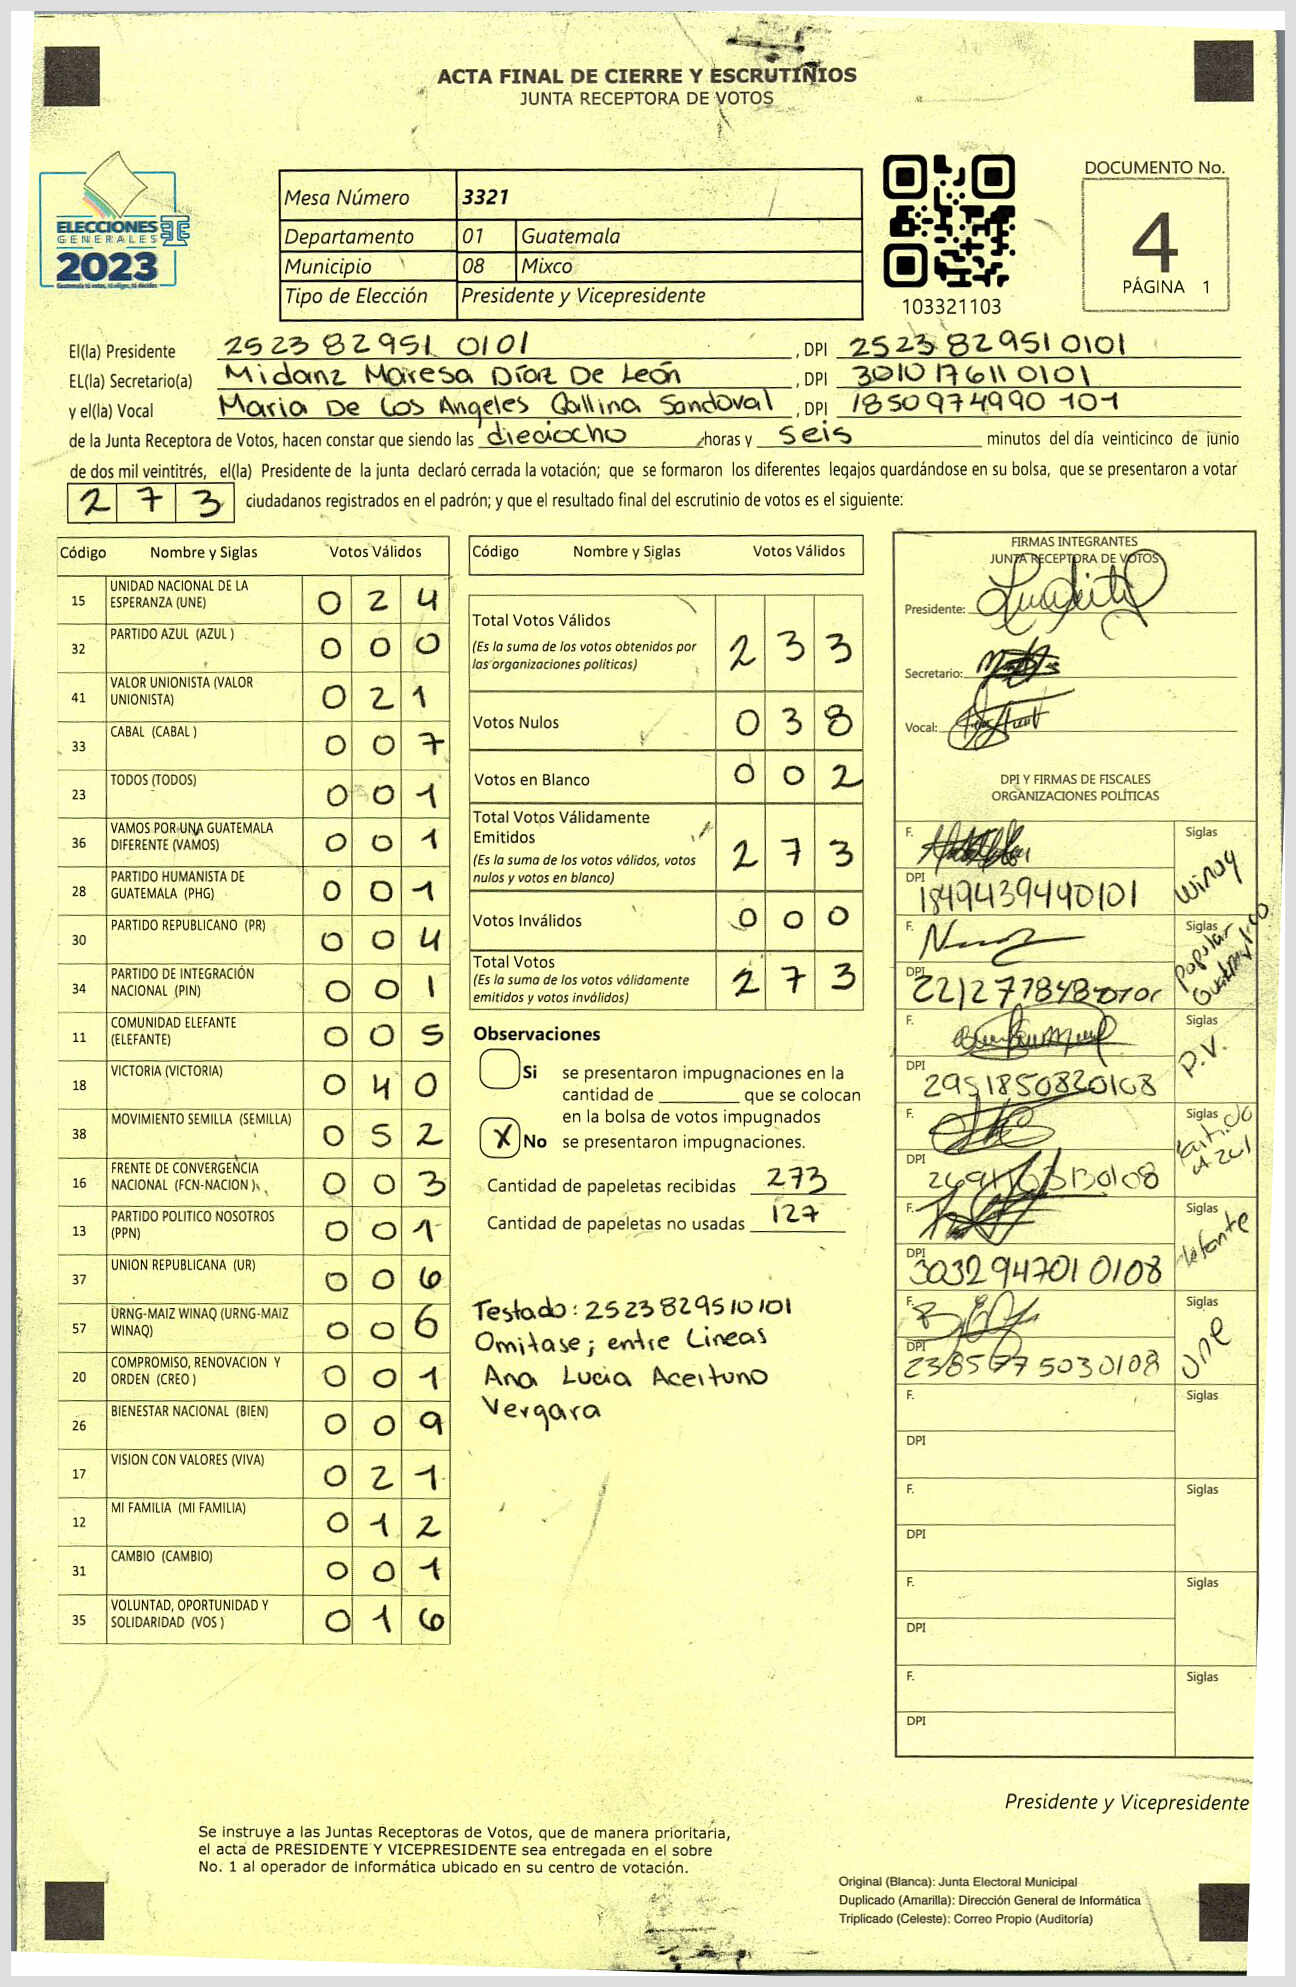 ACTA FINAL DE CIERRE Y ESCRUTINIOS
JUNTA RECEPTORA DE VOTOS
ELECCIONES
GENERALES
2023
Guatemala tú votas, tú eliges, tú decides
Mesa Número 3321
Departamento 01 Guatemala
Municipio 08 Mixco
Tipo de Elección Presidente y Vicepresidente
103321103
DOCUMENTO No.
4
PÁGINA 1
El(la) Presidente 2523 82951 0101 , DPI 2523 82951 0101
EL(la) Secretario(a) Midanz Maresa Díaz De León , DPI 3010 17611 0101
y el(la) Vocal Maria De Los Angeles Gallina Sandoval , DPI 1850974990 101
de la Junta Receptora de Votos, hacen constar que siendo las dieciocho horas y seis minutos del día veinticinco de junio
de dos mil veintitrés, el(la) Presidente de la junta declaró cerrada la votación; que se formaron los diferentes legajos guardándose en su bolsa, que se presentaron a votar
273 ciudadanos registrados en el padrón; y que el resultado final del escrutinio de votos es el siguiente:
Código Nombre y Siglas Votos Válidos
15 UNIDAD NACIONAL DE LA ESPERANZA (UNE) 0 2 4
32 PARTIDO AZUL (AZUL ) 0 0 0
41 VALOR UNIONISTA (VALOR UNIONISTA) 0 2 1
33 CABAL (CABAL ) 0 0 7
23 TODOS (TODOS) 0 0 1
36 VAMOS POR UNA GUATEMALA DIFERENTE (VAMOS) 0 0 1
28 PARTIDO HUMANISTA DE GUATEMALA (PHG) 0 0 1
30 PARTIDO REPUBLICANO (PR) 0 0 4
34 PARTIDO DE INTEGRACIÓN NACIONAL (PIN) 0 0 1
11 COMUNIDAD ELEFANTE (ELEFANTE) 0 0 5
18 VICTORIA (VICTORIA) 0 4 0
38 MOVIMIENTO SEMILLA (SEMILLA) 0 5 2
16 FRENTE DE CONVERGENCIA NACIONAL (FCN-NACION ) 0 0 3
13 PARTIDO POLITICO NOSOTROS (PPN) 0 0 1
37 UNION REPUBLICANA (UR) 0 0 6
57 URNG-MAIZ WINAQ (URNG-MAIZ WINAQ) 0 0 6
20 COMPROMISO, RENOVACION Y ORDEN (CREO ) 0 0 1
26 BIENESTAR NACIONAL (BIEN) 0 0 9
17 VISION CON VALORES (VIVA) 0 2 1
12 MI FAMILIA (MI FAMILIA) 0 1 2
31 CAMBIO (CAMBIO) 0 0 1
35 VOLUNTAD, OPORTUNIDAD Y SOLIDARIDAD (VOS ) 0 1 6
Código Nombre y Siglas Votos Válidos
Total Votos Válidos 2 3 3
(Es la suma de los votos obtenidos por
las organizaciones políticas)
Votos Nulos 0 3 8
Votos en Blanco 0 0 2
Total Votos Válidamente
Emitidos 2 7 3
(Es la suma de los votos válidos, votos
nulos y votos en blanco)
Votos Inválidos 0 0 0
Total Votos 2 7 3
(Es la suma de los votos válidamente
emitidos y votos inválidos)
Observaciones
Si se presentaron impugnaciones en la
cantidad de que se colocan
en la bolsa de votos impugnados
X No se presentaron impugnaciones.
Cantidad de papeletas recibidas 273
Cantidad de papeletas no usadas 127
Testado: 2523829510101
Omitase; entre Lineas
Ana Lucia Aceituno
Vergara
FIRMAS INTEGRANTES
JUNTA RECEPTORA DE VOTOS
Presidente:
Secretario:
Vocal:
DPI Y FIRMAS DE FISCALES
ORGANIZACIONES POLÍTICAS
F. Siglas Winaq
DPI 1849439440101
F. Siglas Popular
DPI
F. Siglas P.V.
DPI 2951850820108
F. Siglas Partido Azul
DPI
F. Siglas elefante
DPI 3032947010108
F. Siglas une
DPI
F. Siglas
DPI
F. Siglas
DPI
F. Siglas
DPI
F. Siglas
DPI
Presidente y Vicepresidente
Se instruye a las Juntas Receptoras de Votos, que de manera prioritaria,
el acta de PRESIDENTE Y VICEPRESIDENTE sea entregada en el sobre
No. 1 al operador de informática ubicado en su centro de votación.
Original (Blanca): Junta Electoral Municipal
Duplicado (Amarilla): Dirección General de Informática
Triplicado (Celeste): Correo Propio (Auditoría)